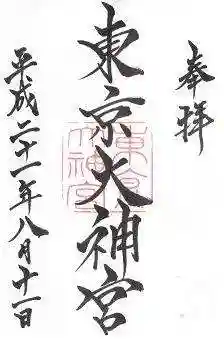 奉拝
東京大神宮
平成二十一年八月十一日
東京大神宮